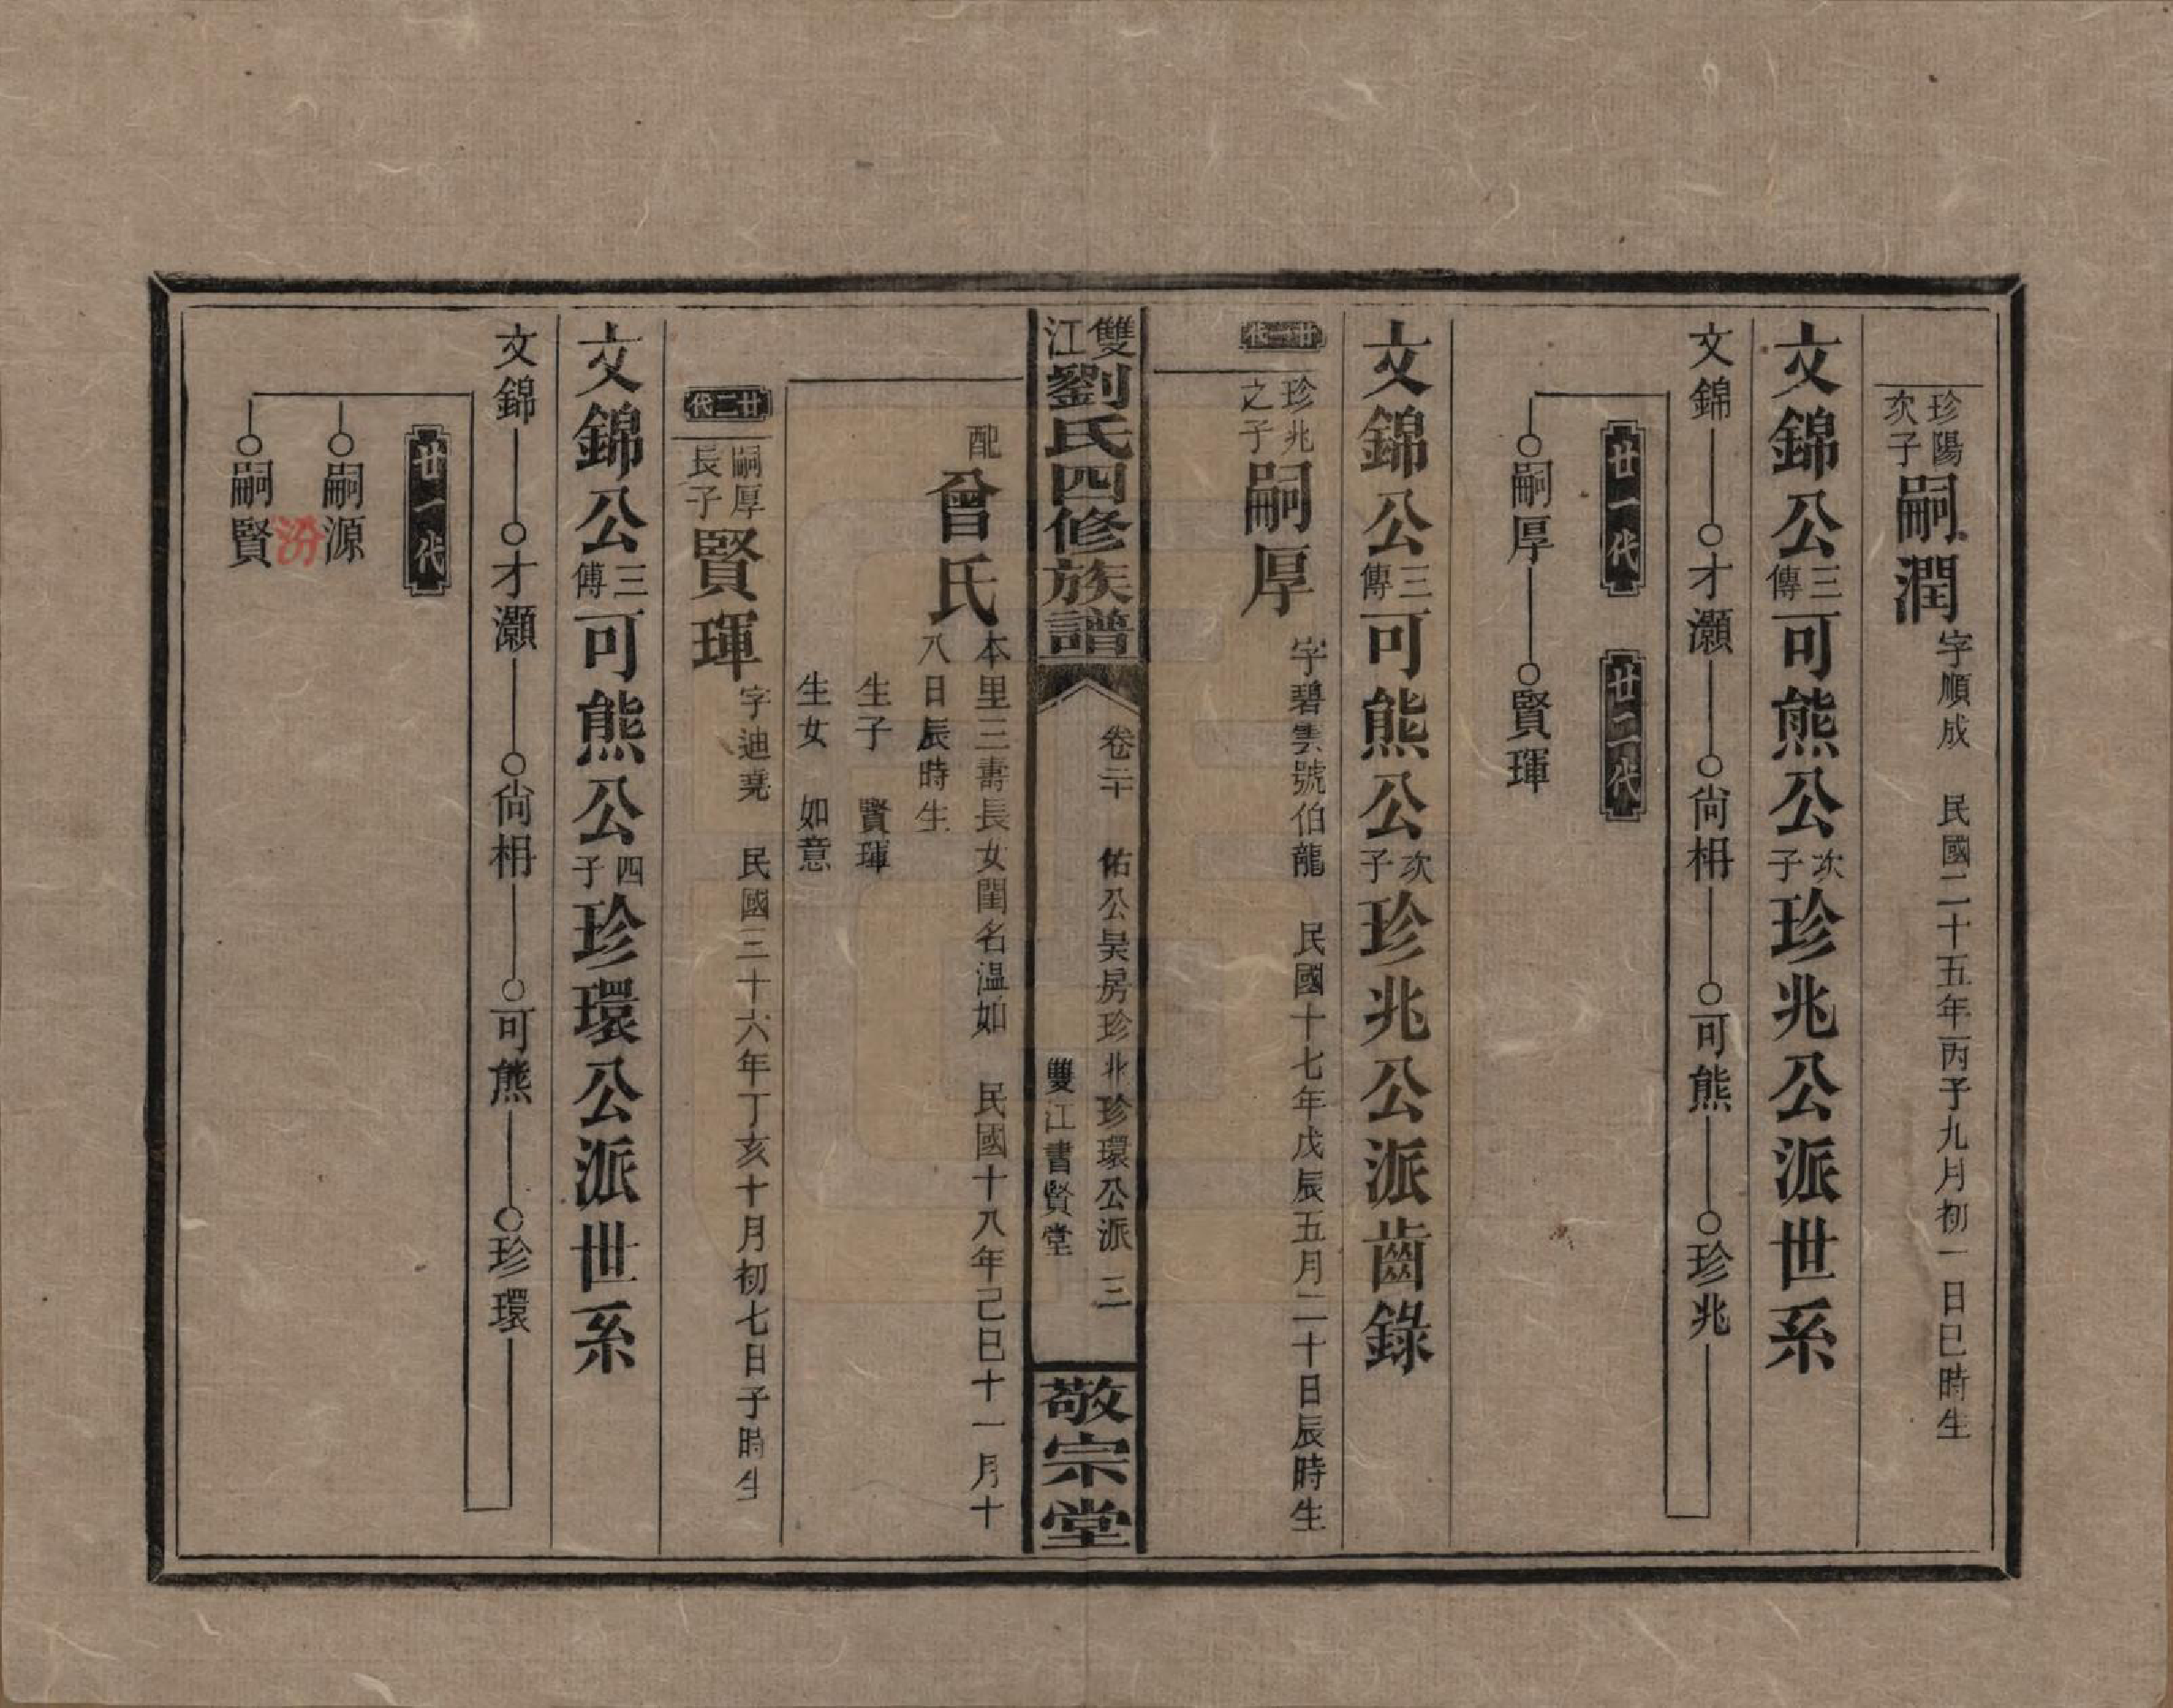 珍陽次子嗣潤字順成 民國二十五年丙子九月初一日巳時生
文錦公三傳可熊公次子珍兆公派世系
文錦 才灝 尙枏 可熊 珍兆
廿一代 廿二代
嗣厚 賢琿
文錦公三傳可熊公次子珍兆公派齒錄
廿一代
珍兆之子嗣厚字碧雲號伯龍 民國十七年戊辰五月二十日辰時生
雙江劉氏四修族譜
卷二十 佑公昊房珍兆珍環公派 三
雙江書賢堂
敬宗堂
配曾氏本里三壽長女閨名溫如 民國十八年己巳十一月十八日辰時生
生子 賢琿
生女 如意
廿二代
嗣厚長子賢琿字迪堯 民國三十六年丁亥十月初七日子時生
文錦公三傳可熊公四子珍環公派世系
文錦 才灝 尙枏 可熊 珍環
廿一代
嗣源
嗣賢